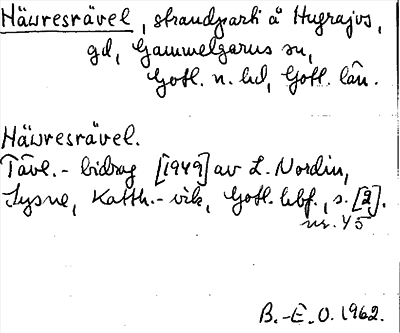 Häwresrävel, strandparti å Hugrajvs,
gd, Gammelgarns sn,
Gotl. n. hd, Gotl. län.
Häwresrävel.
Tävl.-bidrag [1949] av L. Nordin,
Sysne, Katth.-vik, Gotl. hbf., s. [2].
nr. 45
B.-E.O. 1962.